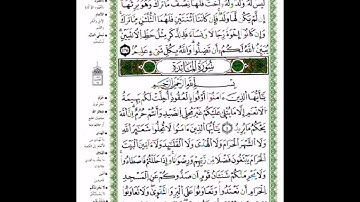 لَيْسَ لَهُ وَلَدٌ وَلَهُ أُخْتٌ فَلَهَا نِصْفُ مَا تَرَكَ وَهُوَ يَرِثُهَا
إِن لَّمْ يَكُن لَّهَا وَلَدٌ فَإِن كَانَتَا اثْنَتَيْنِ فَلَهُمَا الثُّلُثَانِ مِمَّا تَرَكَ
وَإِن كَانُوا إِخْوَةً رِّجَالًا وَنِسَاءً فَلِلذَّكَرِ مِثْلُ حَظِّ الْأُنثَيَيْنِ
يُبَيِّنُ اللَّهُ لَكُمْ أَن تَضِلُّوا وَاللَّهُ بِكُلِّ شَيْءٍ عَلِيمٌ
سُورَةُ الْمَائِدَةِ
بِسْمِ اللَّهِ الرَّحْمَٰنِ الرَّحِيمِ
يَا أَيُّهَا الَّذِينَ آمَنُوا أَوْفُوا بِالْعُقُودِ أُحِلَّتْ لَكُم بَهِيمَةُ
الْأَنْعَامِ إِلَّا مَا يُتْلَىٰ عَلَيْكُمْ غَيْرَ مُحِلِّي الصَّيْدِ وَأَنتُمْ حُرُمٌ إِنَّ اللَّهَ
يَحْكُمُ مَا يُرِيدُ يَا أَيُّهَا الَّذِينَ آمَنُوا لَا تُحِلُّوا شَعَائِرَ اللَّهِ
وَلَا الشَّهْرَ الْحَرَامَ وَلَا الْهَدْيَ وَلَا الْقَلَائِدَ وَلَا آمِّينَ الْبَيْتَ
الْحَرَامَ يَبْتَغُونَ فَضْلًا مِّن رَّبِّهِمْ وَرِضْوَانًا وَإِذَا حَلَلْتُمْ فَاصْطَادُوا
وَلَا يَجْرِمَنَّكُمْ شَنَآنُ قَوْمٍ أَن صَدُّوكُمْ عَنِ الْمَسْجِدِ
الْحَرَامِ أَن تَعْتَدُوا وَتَعَاوَنُوا عَلَى الْبِرِّ وَالتَّقْوَىٰ وَلَا تَعَاوَنُوا